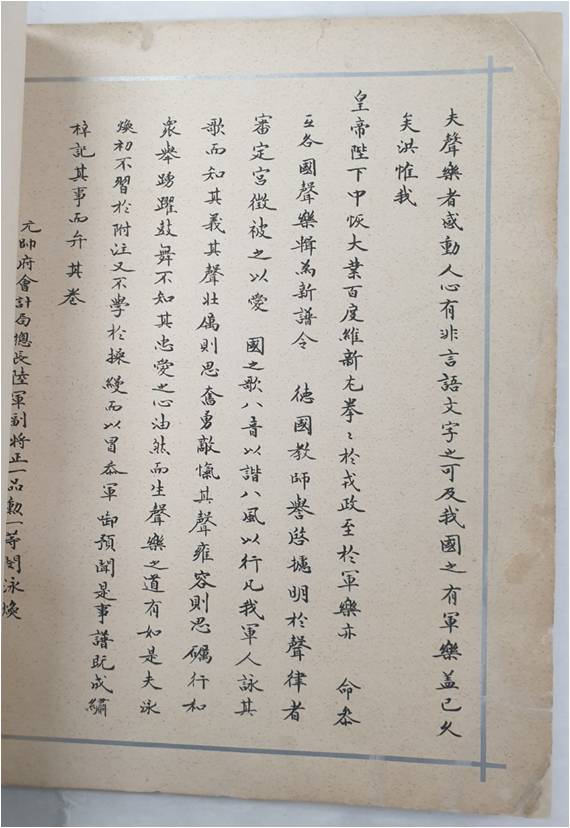 夫聲樂者感動人心有非言語文字之可及我國之有軍樂盖已久
矣洪惟我
皇帝陛下中恢大業百度維新尤拳〻於戎政至於軍樂亦 命叅
互各國聲樂輯爲新譜令 德國教師譽啓㙜明於聲律者
審定宮徵被之以愛 國之歌八音以諧八風以行凡我軍人詠其
歌而知其義其聲壯厲則思奮勇敵愾其聲雍容則思礪行和
衆擧踴躍鼓舞不知其忠愛之心油然而生聲樂之道有如是夫泳
煥初不習於附注又不學於操縵而以冒忝軍啣預聞是事譜旣成繡
梓記其事而弁 其卷
元帥府會計局總長陸軍副將正一品勳一等閔泳煥